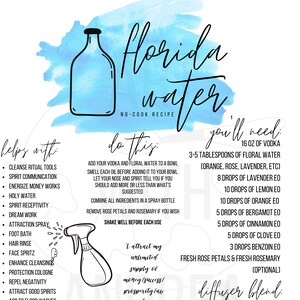 florida
water
NO-COOK RECIPE
helps with:
CLEANSE RITUAL TOOLS
SPIRIT COMMUNICATION
ENERGIZE MONEY WORKS
HOLY WATER
SPIRIT RECEPTIVITY
DREAM WORK
ATTRACTION SPRAY
FOOT BATH
HAIR RINSE
FACE SPRITZ
ENHANCE CLEANSING
PROTECTION COLOGNE
REPEL NEGATIVITY
ATTRACT GOOD SPIRITS
do this:
ADD YOUR VODKA AND FLORAL WATER TO A BOWL
SMELL EACH OIL BEFORE ADDING IT TO THE BOWL,
LET YOUR NOSE AND SPIRIT TELL YOU IF YOU
SHOULD ADD MORE OR LESS THAN WHAT'S
SUGGESTED
COMBINE ALL INGREDIENTS IN A SPRAY BOTTLE
REMOVE ROSE PETALS AND ROSEMARY IF YOU WISH
SHAKE WELL BEFORE EACH USE
I attract my
unlimited
supply of
money/success/
prosperity/luv
you'll need:
16 OZ OF VODKA
3-5 TABLESPOONS OF FLORAL WATER
(ORANGE, ROSE, LAVENDER, ETC)
8 DROPS OF LAVENDER EO
10 DROPS OF LEMON EO
10 DROPS OF ORANGE EO
5 DROPS OF BERGAMOT EO
5 DROPS OF CINNAMON EO
5 DROPS OF CLOVE EO
3 DROPS BENZOIN EO
FRESH ROSE PETALS & FRESH ROSEMARY
(OPTIONAL)
diffuser blend: